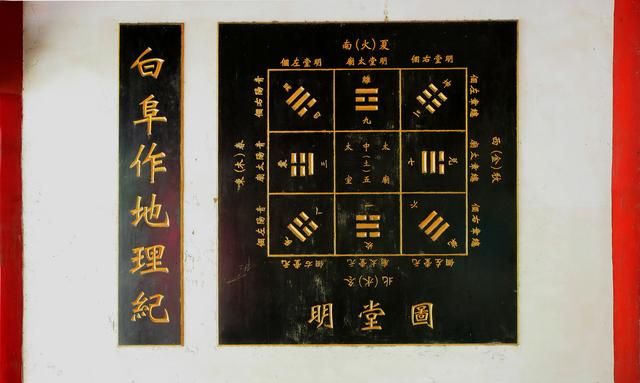 白阜作地理紀
夏(火)南
明堂右個
明堂太廟
明堂左個
青陽右個
青陽太廟
青陽左個
春(木)東
總章左個
總章太廟
總章右個
秋(金)西
四
離
九
二
震
三
太廟
中(土)五
太室
兌
七
八
一
坎
六
元堂左個
元堂太廟
元堂右個
北(水)冬
明堂圖